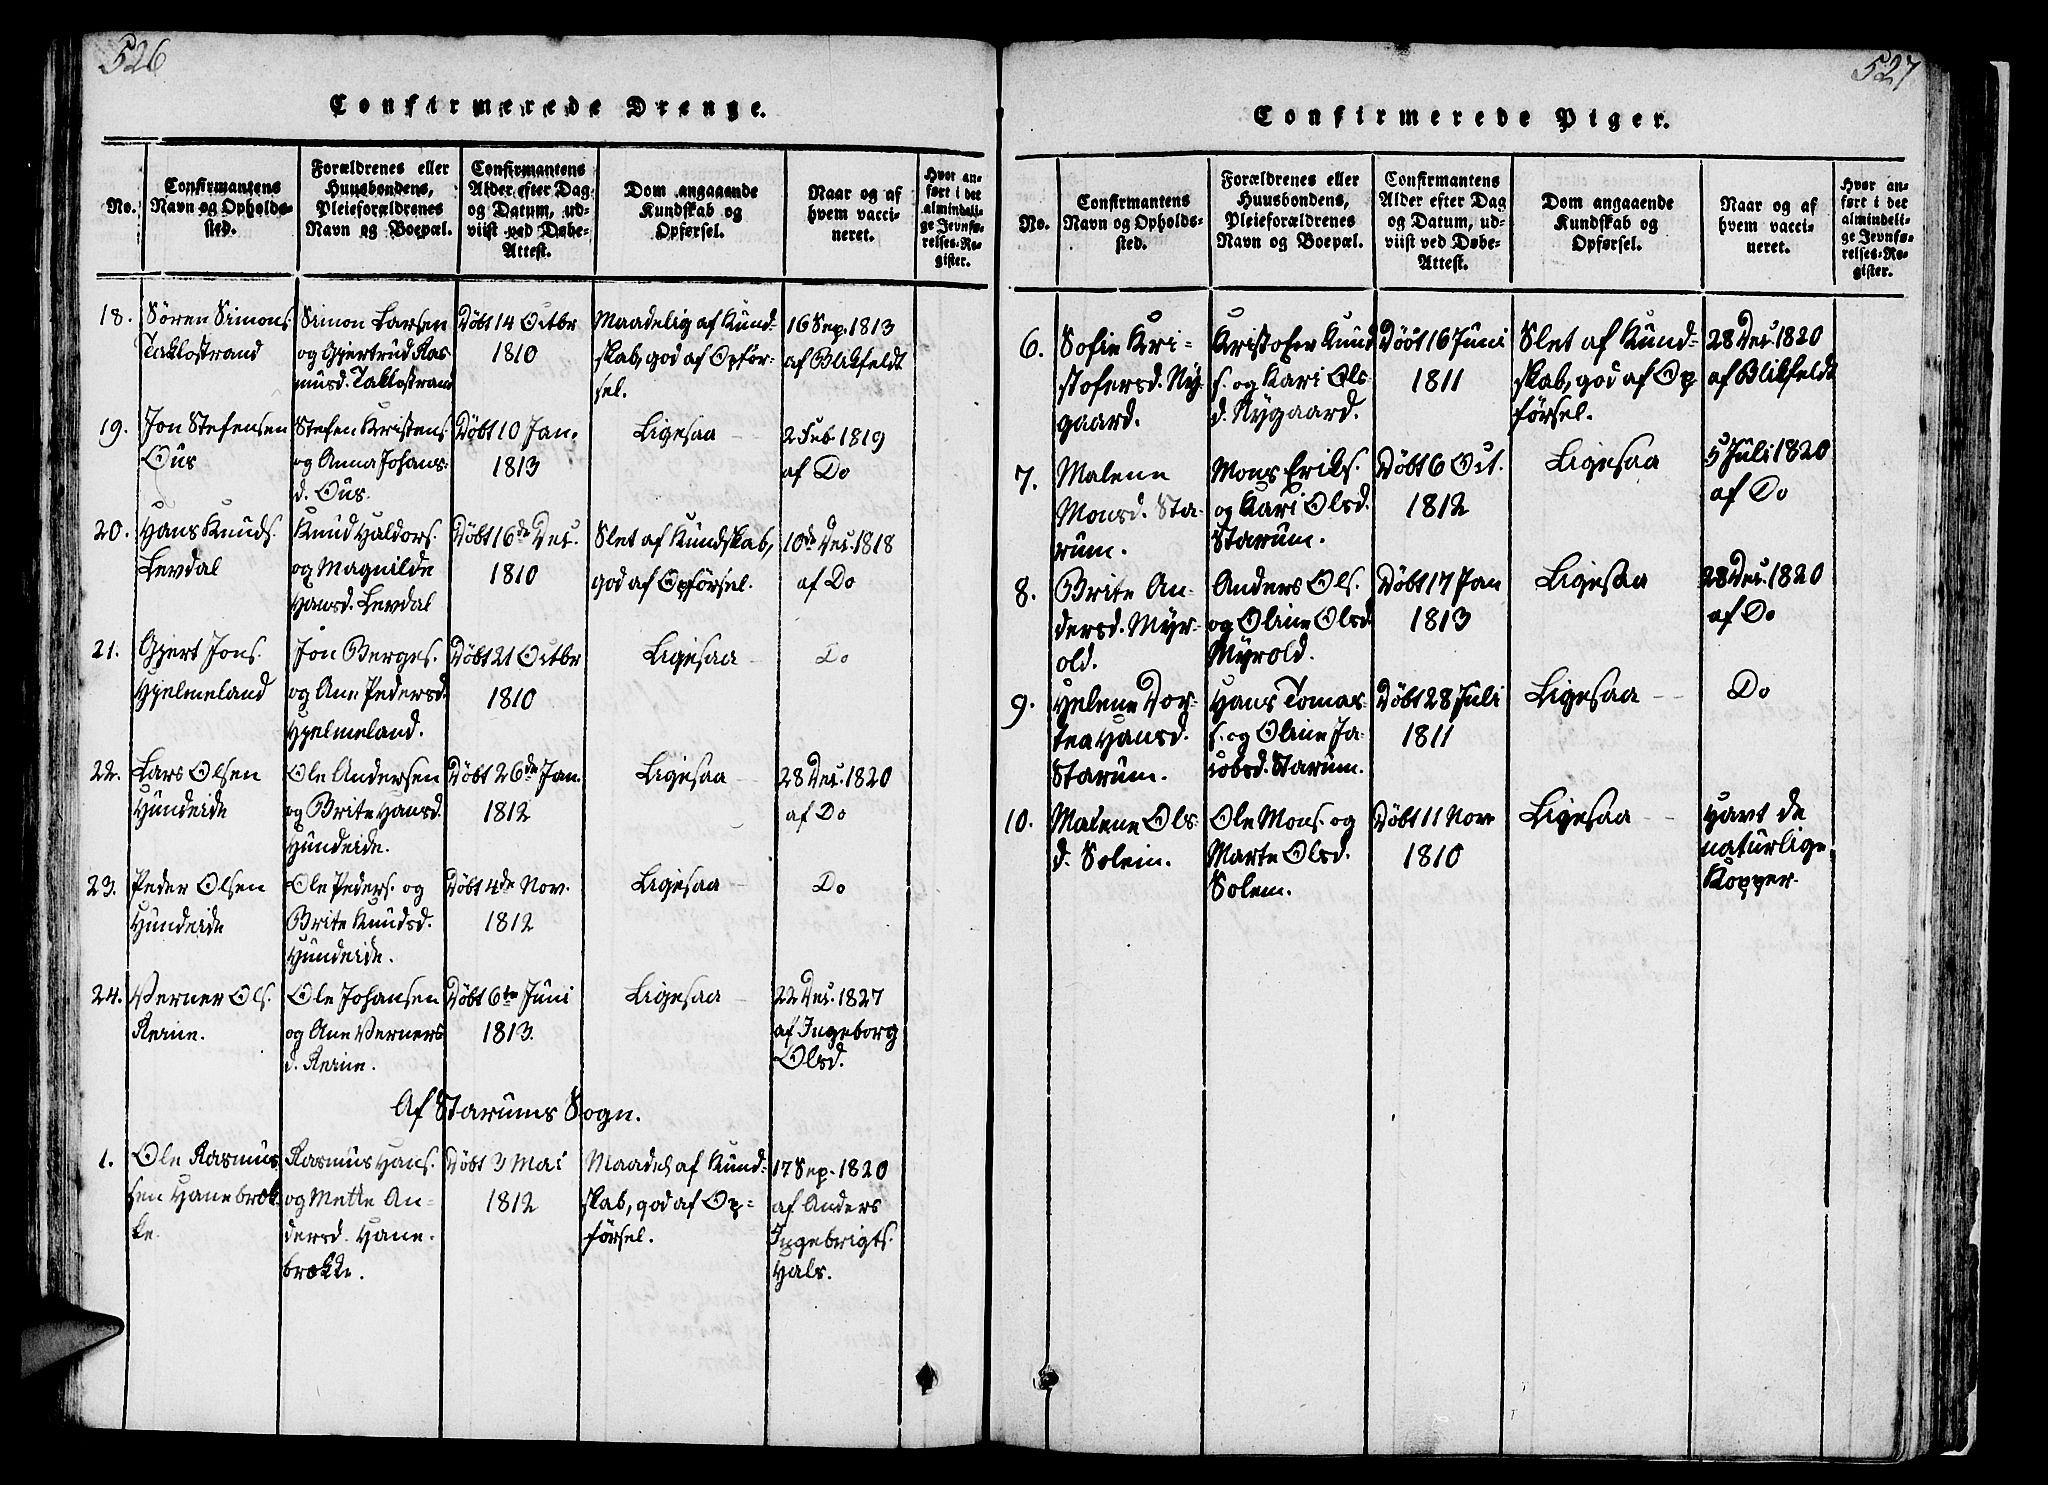 526
Confirmerede Drenge.
No.
Confirmantens
Navn og Opholds-
sted.
Forældrenes eller
Huusbondens,
Pleieforældrenes
Navn og Boepæl.
Confirmantens
Alder efter Dag
og Datum, ud-
viist ved Døbe-
Attest.
Dom angaaende
Kundskab og
Opførsel.
Naar og af
hvem vacci-
neret.
Hvor an-
ført i det
almindeli-
ge Jevnfø-
relses-Re-
gister.
18.
Sören Simons
Taklostrand
Simon Larsen
og Gjertrud Ras
musd. Taklostrand
Døbt 14 Octbr
1810
Maadelig af Kund-
skab, god af Opför-
sel.
16 Sep. 1813
af Blikfeldt
19.
Jon Stefensen
Ous
Stefen Kristens
og Anna Johans-
d. Ous.
Døbt 10 Jan.
1813
Ligesaa
2 Feb. 1819
af Do
20.
Hans Knuds.
Levdal
Knud Haldors.
og Magnilde
Hansd. Levdal
Døbt 16de Dec.
1810
Slet af Kundskab,
god af Opförsel.
10de Dec. 1818
af Do
21.
Gjert Jons.
Hjelmeland
Jon Berges.
og Ane Pedersd.
Hjelmeland.
Døbt 21 Octbr
1810
Ligesaa
Do
22.
Lars Olsen
Hundeide
Ole Andersen
og Brite Hansd.
Hundeide.
Døbt 26de Jan.
1812
Ligesaa
28 Dec. 1820
af Do
23.
Peder Olsen
Hundeide
Ole Peders. og
Brite Knudsd.
Hundeide.
Døbt 4de Nov.
1812
Ligesaa
Do
24.
Verner Ols.
Ole Johansen
og Ane Verners
Døbt 6te Juni
1813.
Ligesaa
22 Dec. 1827
af Ingeborg
Olsd.
Af Starums Sogn.
1.
Ole Rasmus
sen Hanebræk
ke.
Rasmus Hans.
og Mette An-
dersd. Hane-
brække.
Døbt 3 Mai
1812
Maadel. af Kund-
skab, god af Op-
försel.
17 Sep. 1820
af Anders
Ingebrigts.
Hals.
527
Confirmerede Piger.
No.
Confirmantens
Navn og Opholds-
sted.
Forældrenes eller
Huusbondens,
Pleieforældrenes
Navn og Boepæl.
Confirmantens
Alder efter Dag
og Datum, ud-
viist ved Døbe-
Attest.
Dom angaaende
Kundskab og
Opførsel.
Naar og af
hvem vacci-
neret.
Hvor an-
ført i det
almindeli-
ge Jevnfø-
relses-Re-
gister.
6.
Sofie Kri-
stofersd. Ny-
gaard.
Kristofer Knud
s. og Kari Ols
d. Nygaard.
Døbt 16 Juni
1811
Slet af Kund-
skab, god af Op
försel.
28 Dec. 1820
af Blikfeldt
7.
Malene
Monsd. Sta-
rum.
Mons Eriks.
og Kari Olsd.
Starum.
Døbt 6 Oct.
1812
Ligesaa
5 Juli 1820
af Do
8.
Brite An-
dersd. Myr-
old.
Anders Ols.
og Oline Olsd
Myrold.
Døbt 17 Jan
1813
Ligesaa
28 Dec. 1820
af Do
9.
Helene Dor-
tea Hansd.
Starum.
Hans Tomas-
s. og Oline Ja-
cobsd. Starum.
Døbt 28 Juli
1811
Ligesaa
Do
10.
Malene Ols-
d. Solem.
Ole Mons. og
Marte Olsd.
Solem.
Døbt 11 Nov
1810
Ligesaa
Havt de
naturlige
Kopper.